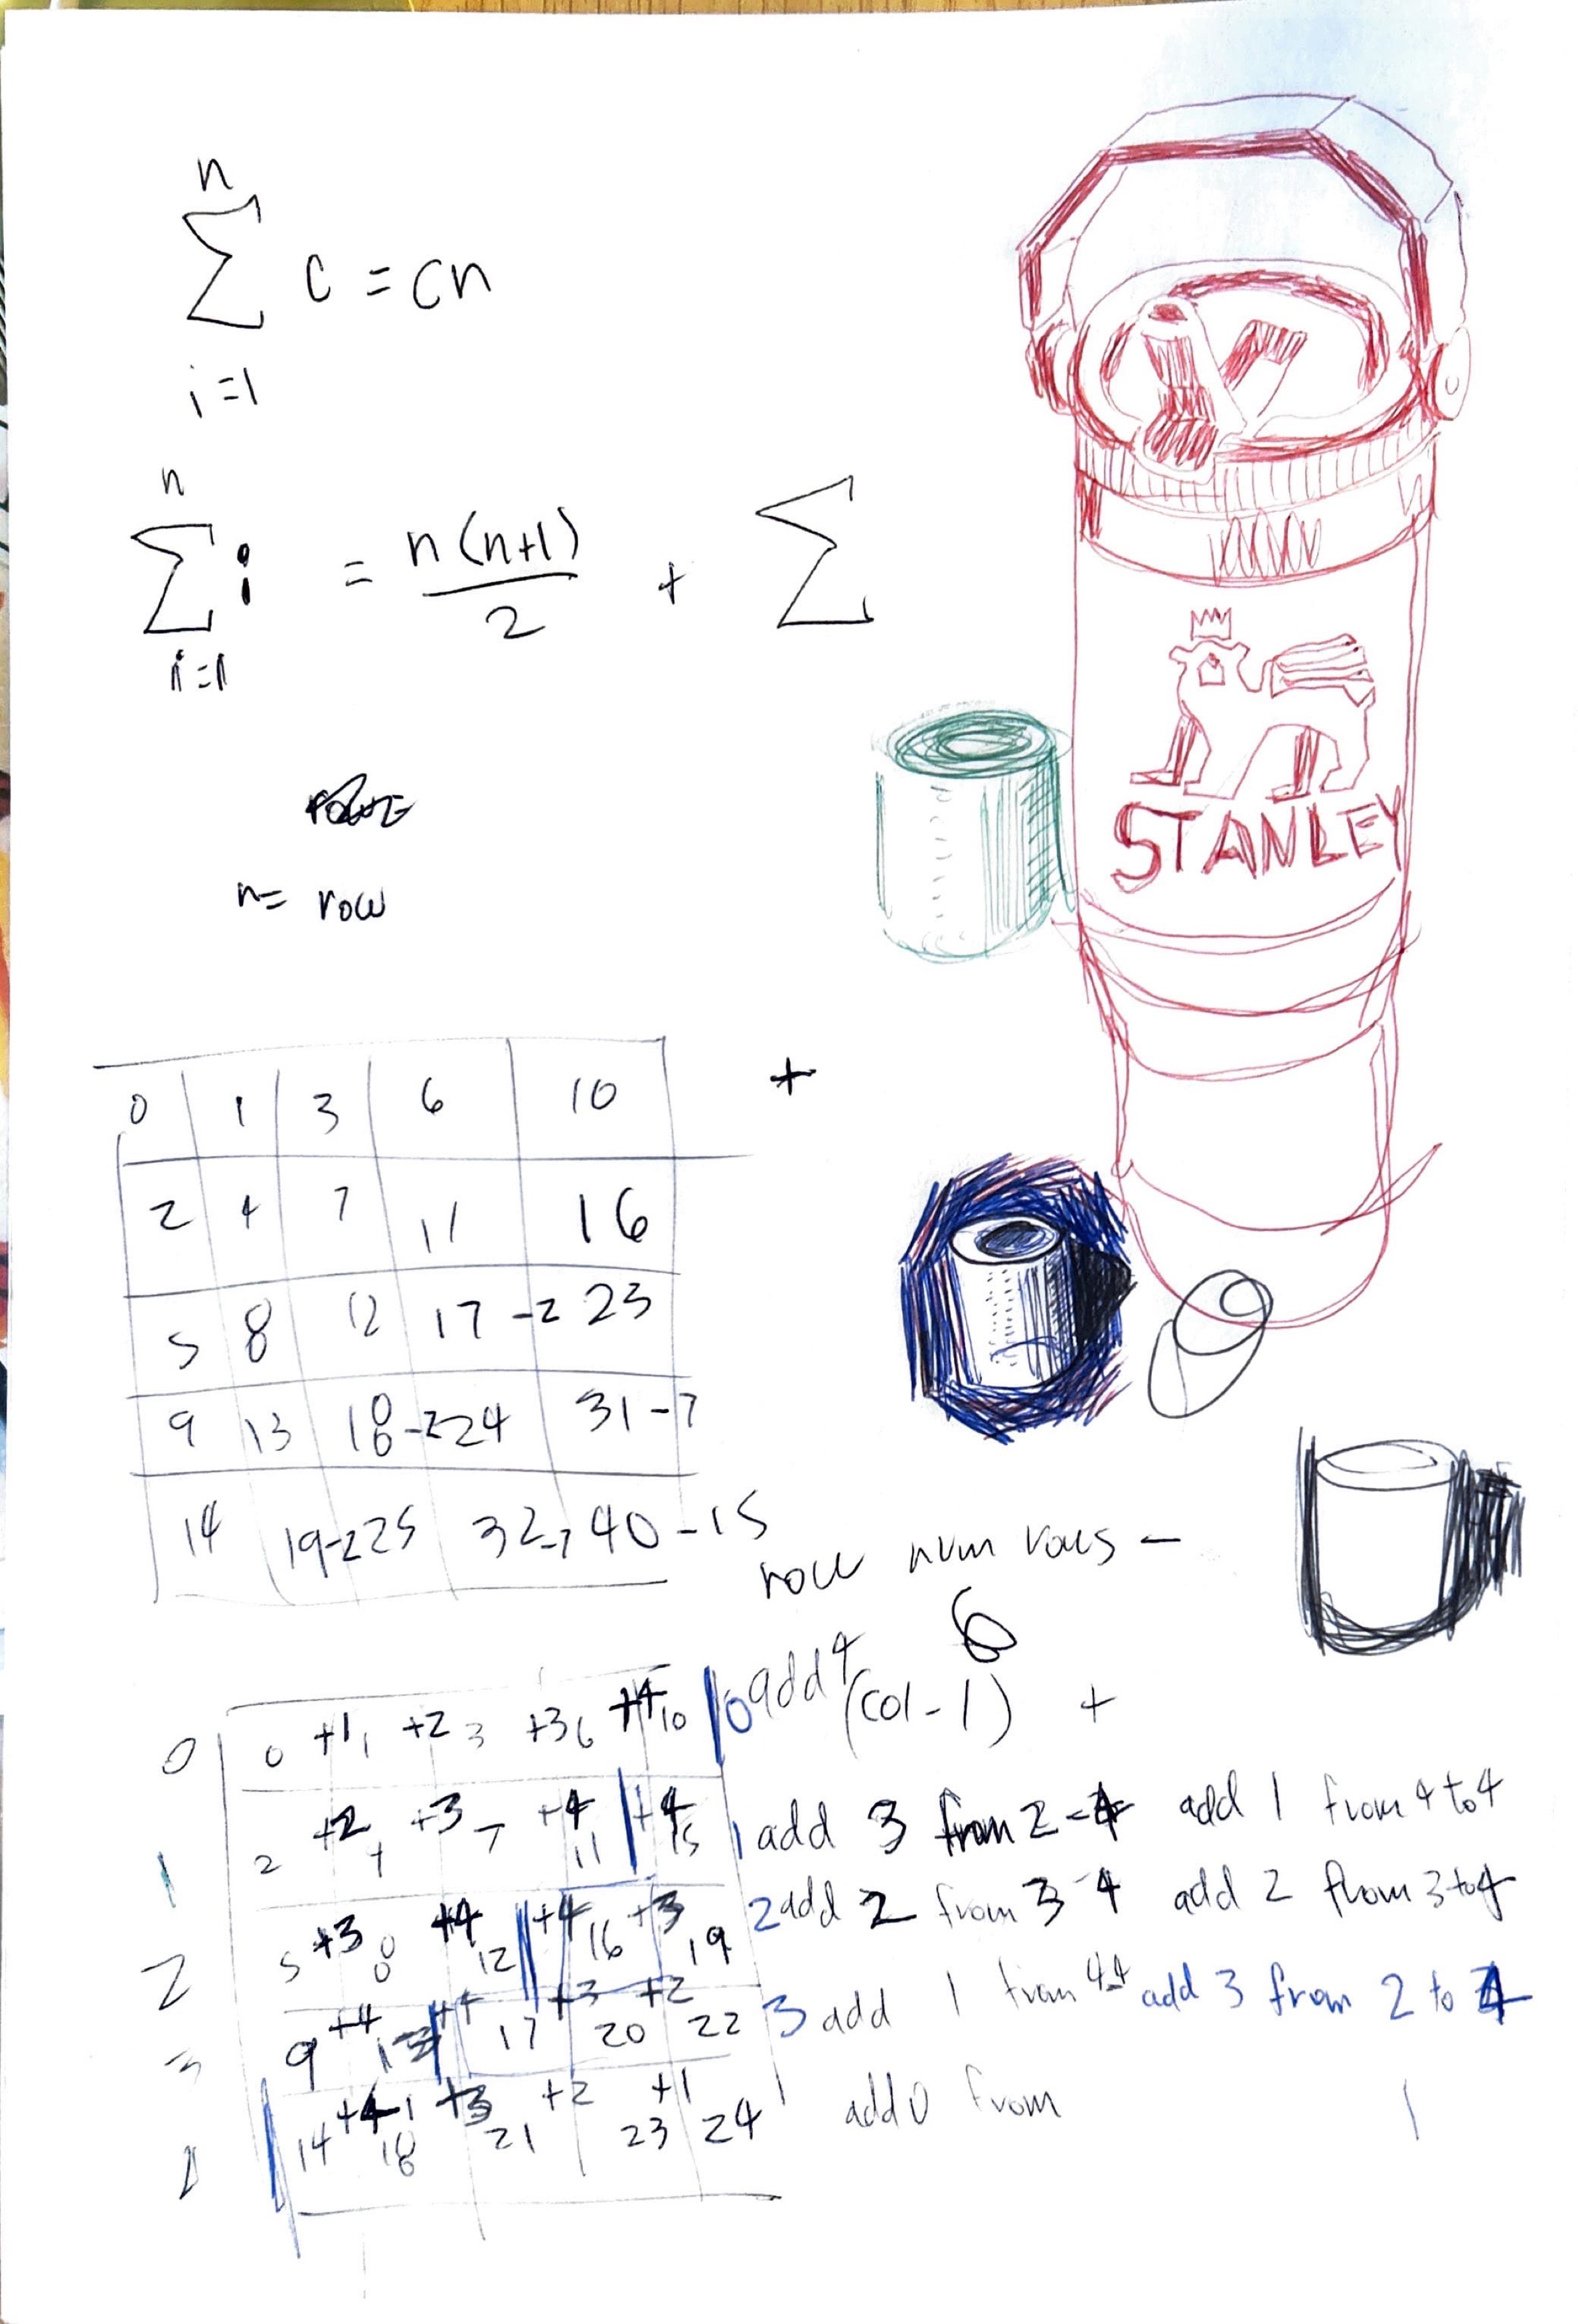 n
∑ c = cn
i=1
n
∑ i = n(n+1)/2 + ∑
i=1
STANLEY
n= row
0 1 3 6 10
+
2 4 7 11 16
5 8 12 17 -2 23
9 13 18 -2 24 31 -7
14 19 -2 25 32 -7 40 -15
row num rows -
6
0 0 +1 1 +2 3 +3 6 +4 10 0 add 4 (col-1) +
1 2 +2 4 +3 7 +4 11 +4 15 1 add 3 from 2-4 add 1 from 4 to 4
2 5 +3 8 +4 12 +4 16 +3 19 2 add 2 from 3-4 add 2 from 3 to 4
3 9 +4 13 +4 17 +3 20 +2 22 3 add 1 from 4-4 add 3 from 2 to 4
14 +4 18 +3 21 +2 23 +1 24 add 0 from